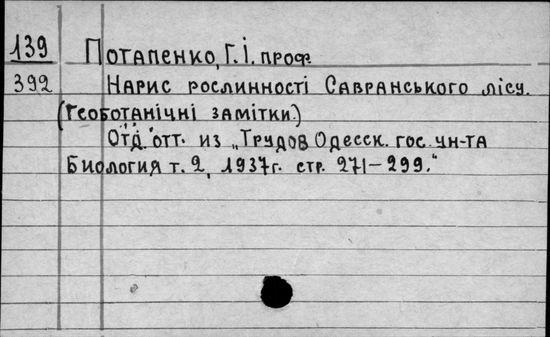 139 Потапенко, Г.І. проф.
392 Нарис рослинності Савранського лісу.
(Геоботанічні замітки.)
Отд. отт. из „Трудов Одесск. гос. ун-та
Биология т. 2, 1937г. стр. 271–299."